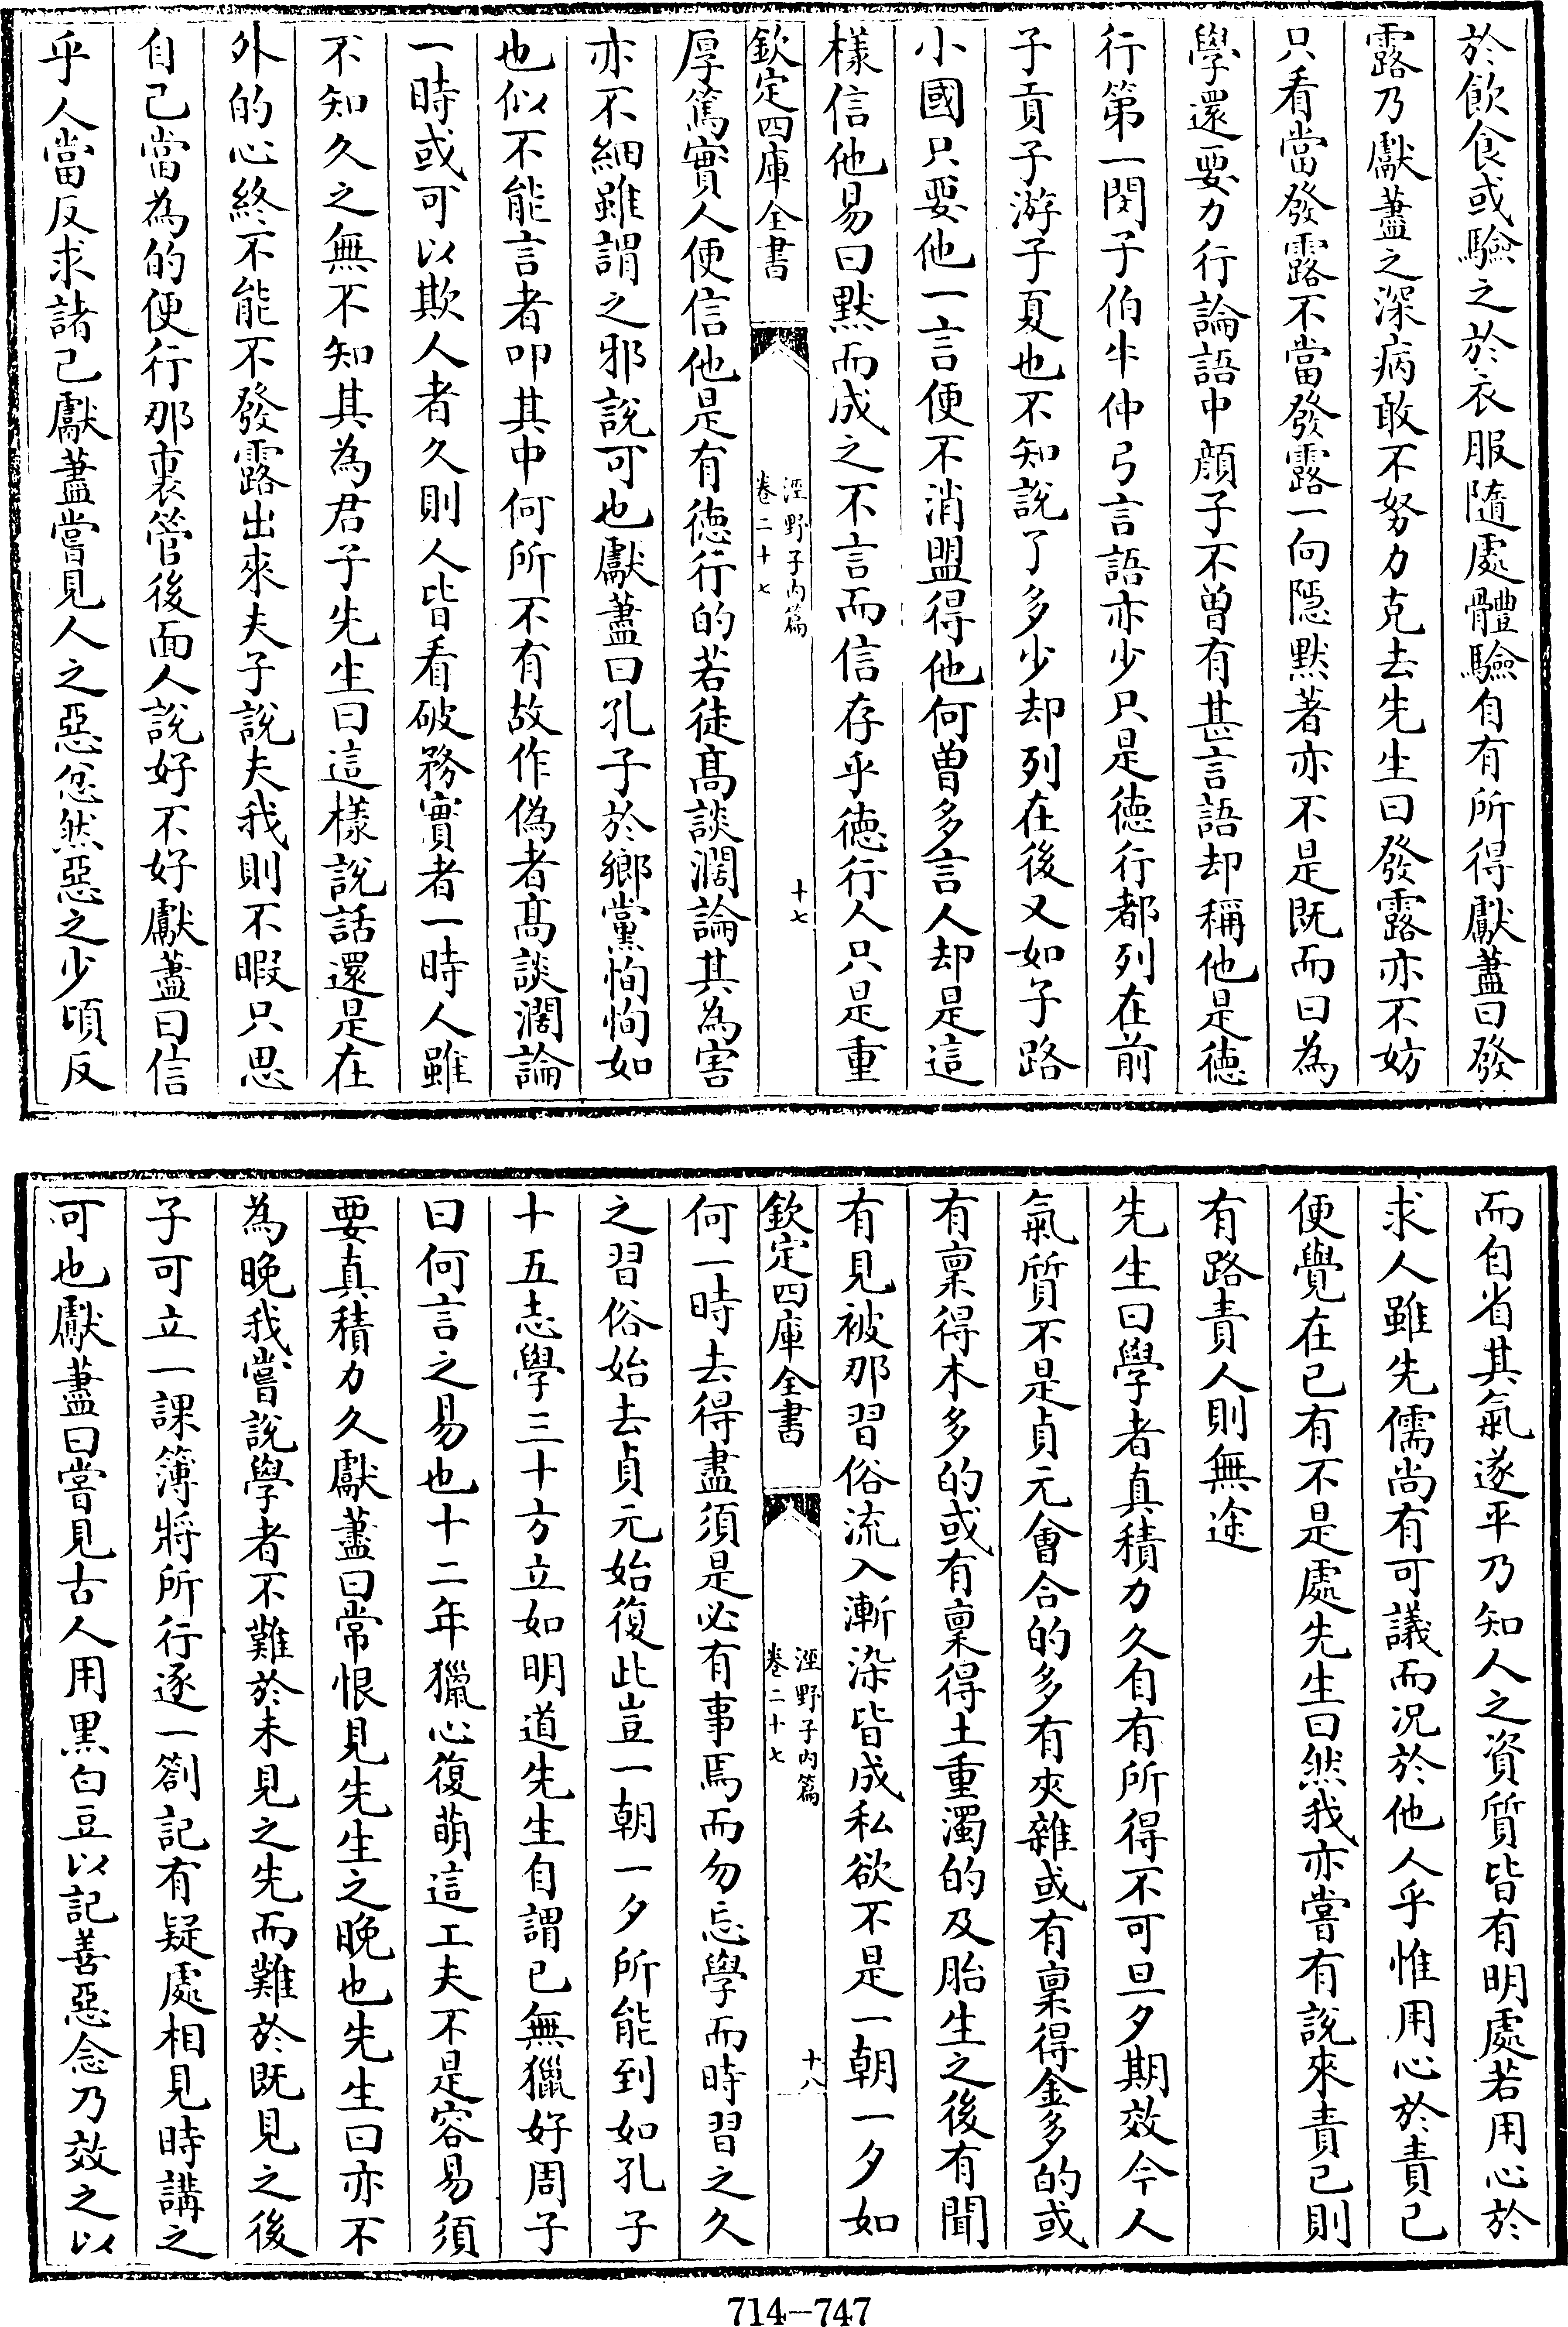 於飲食或驗之於衣服隨處體驗自有所得獻藎曰發
露乃獻藎之深病敢不努力克去先生曰發露亦不妨
只看當發露不當發露一向隠黙著亦不是既而曰為
學還要力行論語中顔子不曽有甚言語却稱他是徳
行第一閔子伯牛仲弓言語亦少只是徳行都列在前
子貢子游子夏也不知説了多少却列在後又如子路
小國只要他一言便不消盟得他何曽多言人却是這
樣信他易曰黙而成之不言而信存乎徳行人只是重
欽定四庫全書
涇野子内篇
卷二十七
十七
厚篤實人便信他是有徳行的若徒髙談濶論其為害
亦不細雖謂之邪説可也獻藎曰孔子於鄉黨恂恂如
也似不能言者叩其中何所不有故作偽者髙談濶論
一時或可以欺人者久則人皆看破務實者一時人雖
不知久之無不知其為君子先生曰這樣説話還是在
外的心終不能不發露出來夫子説夫我則不暇只思
自己當為的便行那裏管後面人説好不好獻藎曰信
乎人當反求諸己獻藎嘗見人之惡忿然惡之少頃反
而自省其氣遂平乃知人之資質皆有明處若用心於
求人雖先儒尚有可議而况於他人乎惟用心於責已
便覺在已有不是處先生曰然我亦嘗有説來責已則
有路責人則無途
先生曰學者真積力久自有所得不可旦夕期效今人
氣質不是貞元會合的多有夾雜或有稟得金多的或
有稟得木多的或有稟得土重濁的及胎生之後有聞
有見被那習俗流入漸染皆成私欲不是一朝一夕如
欽定四庫全書
涇野子内篇
卷二十七
十八
何一時去得盡須是必有事焉而勿忘學而時習之久
之習俗始去貞元始復此豈一朝一夕所能到如孔子
十五志學三十方立如明道先生自謂已無獵好周子
曰何言之易也十二年獵心復萌這工夫不是容易須
要真積力久獻藎曰常恨見先生之晩也先生曰亦不
為晩我嘗説學者不難於未見之先而難於既見之後
子可立一課簿將所行逐一劄記有疑處相見時講之
可也獻藎曰嘗見古人用黒白豆以記善惡念乃效之以
714-747